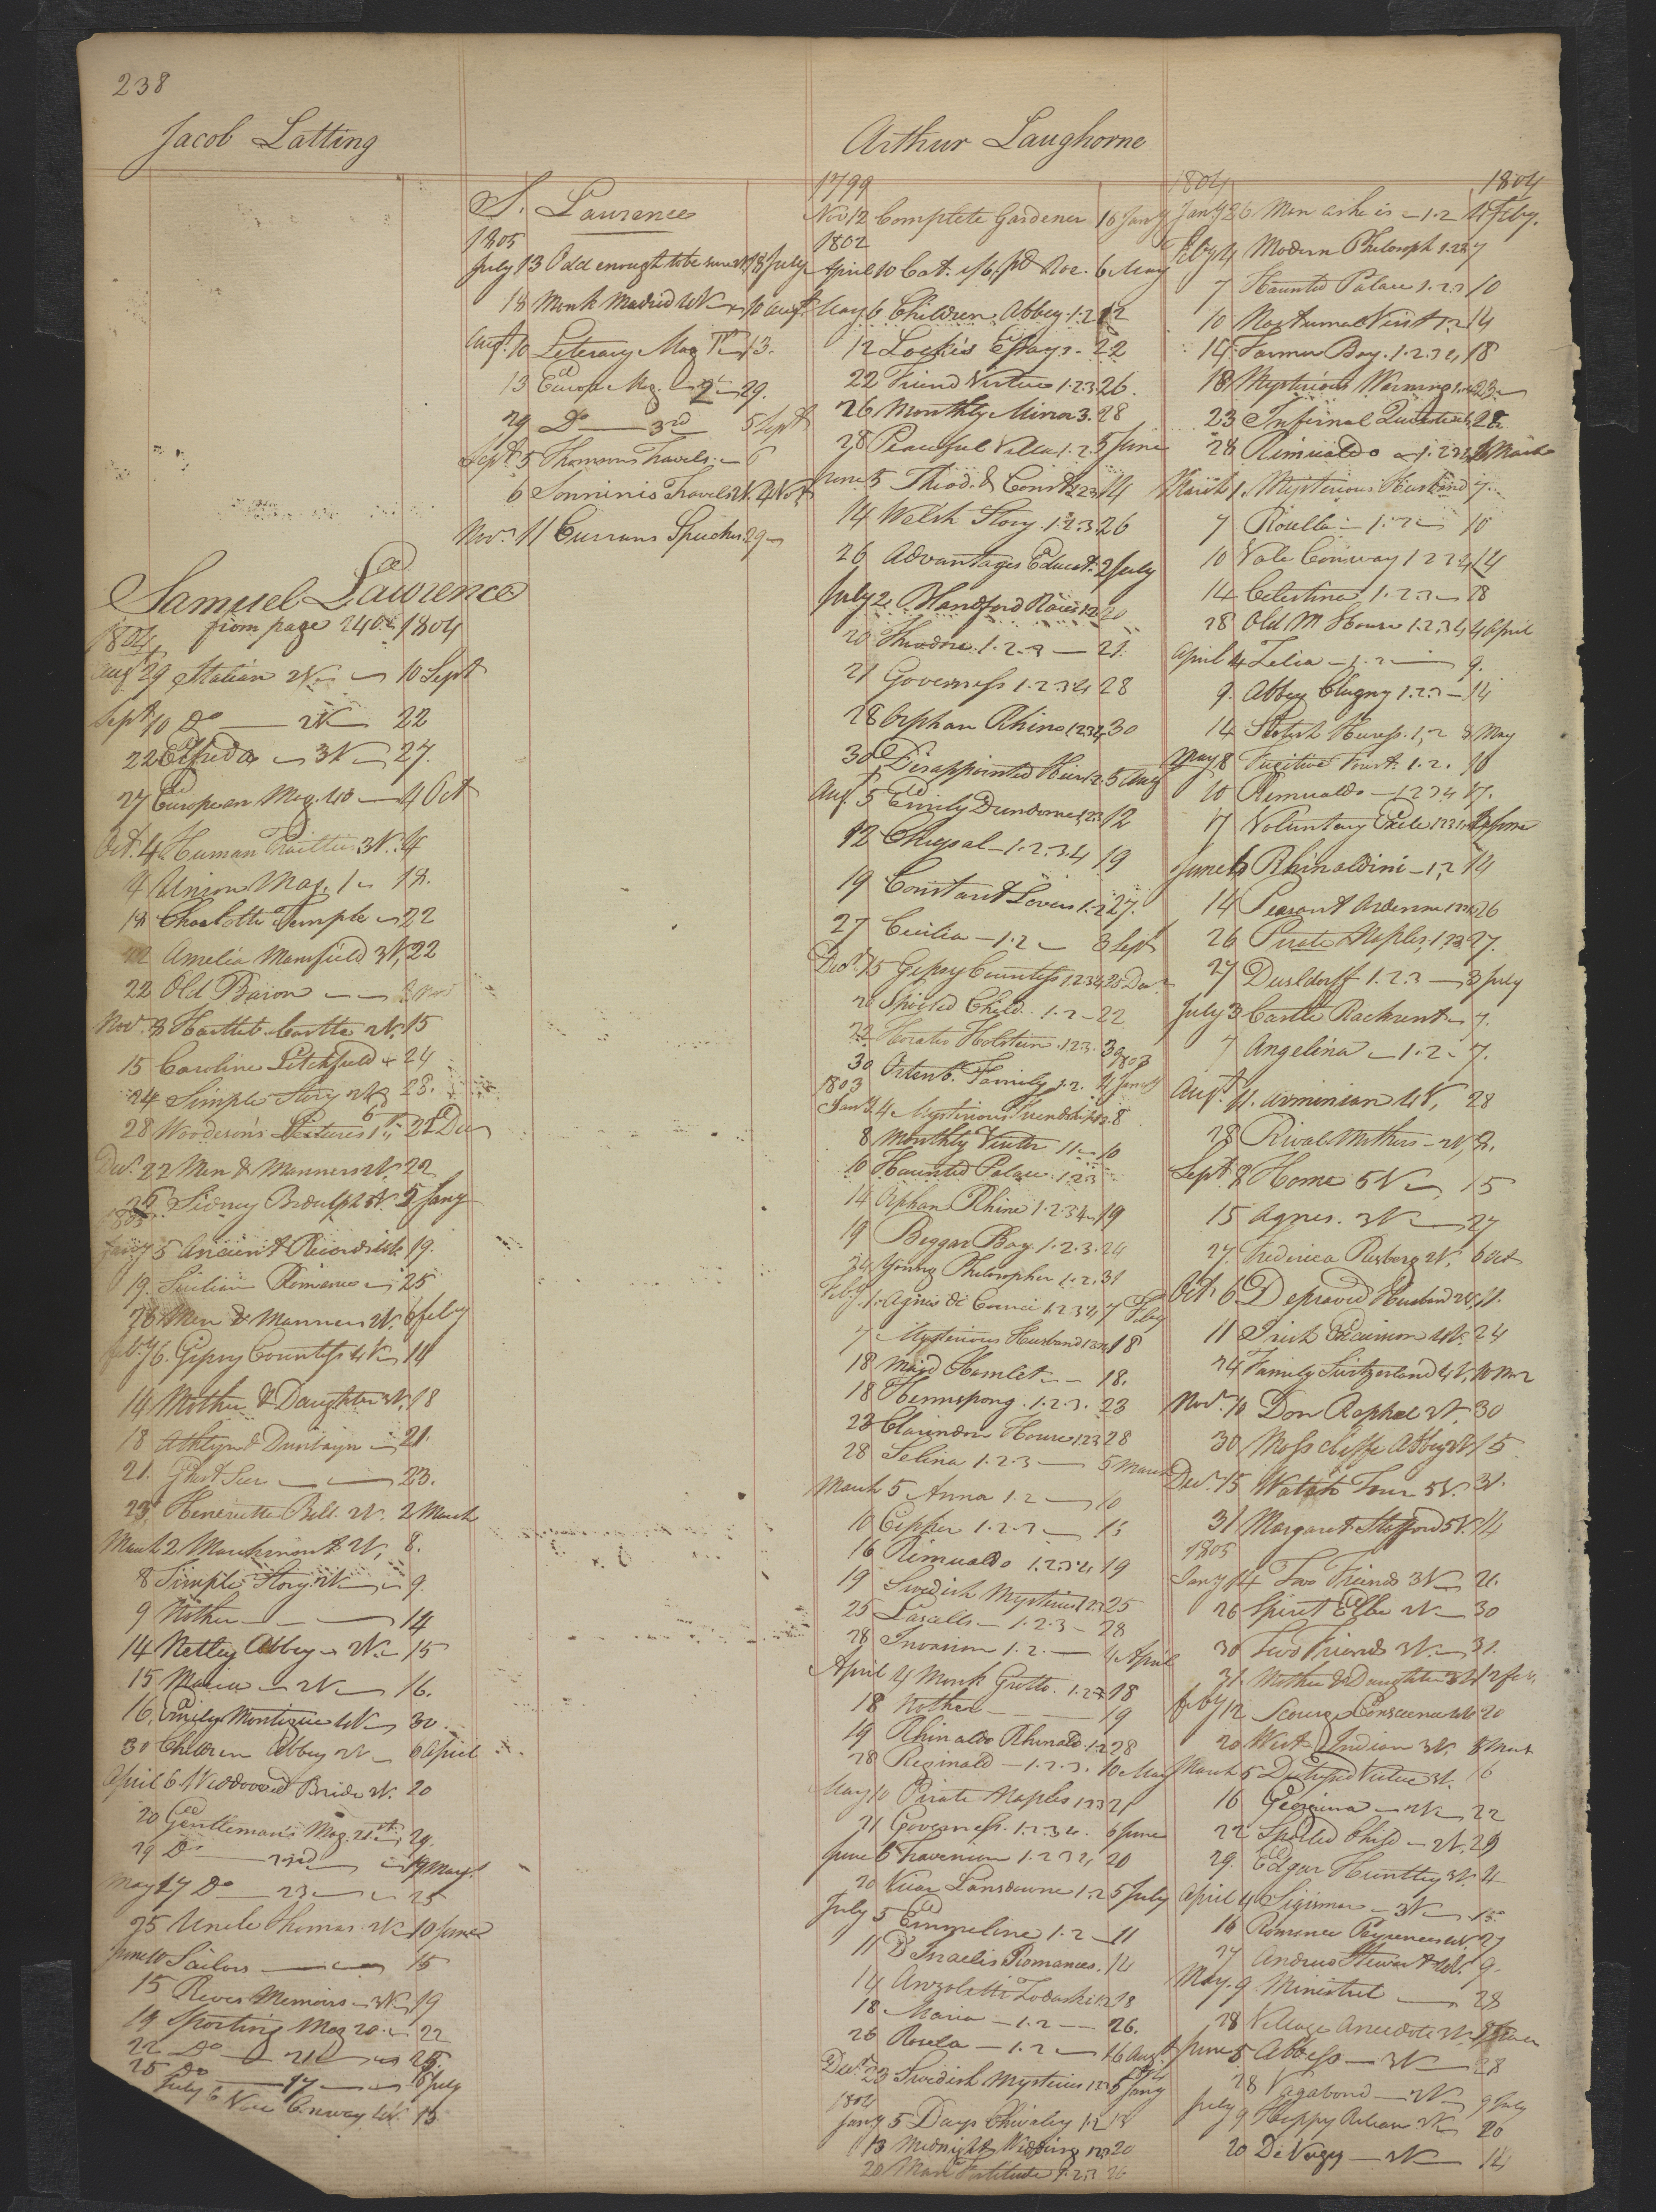 238
Jacob Latting
Samuel Lawrence
from page 240. 1804
1804
Augt 29 Italian 2V 10 Sept
Sept 10 Do 2V 22
22 Elfreda 3V 27.
27 European Mag. 40 4 Oct
Oct. 4 Human 3V. 4
4 Union Mag. 1 18.
18 Charlotte Temple 22
22 Amelia Mansfield 3V. 22
22 Old Baron
Nov. 8 Castle 2V. 15
15 Caroline Litchfield 24
24 Simple Story 28.
28 Woodesons Lectures 22 Dec
Decr. 22 Men & Manners 2V. 22
26 Sidney Bidulph 5 Jany
1805
Jany 5 Ancient Records 4V 19.
19. Sicilian Romance 25
26 Men & Manners 2V. 6 feby
feby 6. Gipsy Countess 4V 14
14 Mother & Daughter 3V. 18
18 Athlyn & Dunbayn 21.
21. Ghost Seer 23.
23 Henrietta Bell. 2V. 2 March
March 2 Marchmont 2V, 8.
8 Simple Story 2V 9.
9 Nother 14
14 Netley Abbey 2V. 15
15 Maria 2V 16.
16. Emily Montague 4V 30
30 Children Abbey 2V 6 April
April 6 Widowed Bride 2V. 20
20 Gentleman's Mag. 21st 29.
29 Do 19 May.
May 17 Do 23 25
25 Uncle Thomas 2V 10 June
June 10 Sailors 15
15 Reves Memoirs 3V 19
19 Sporting Mag 20. 22
22 Do 21 25.
25 Do 17 6 July
July 6 Vale Conway 4V. 13
S. Lawrence
1805
July 13 Odd enough to be sure 2V 18 July
18 Monk Madrid 4V 10 Augt
Augt. 10 Literary Mag 1st 13.
13 Europe Mag. 2d 29.
29 Do 3rd 5 Sept
Sept 5 Thomsons Travels. 6
6 Sonninis Travels 2V. 4 Nov
Novr. 11 Currans Speeches 29
Arthur Langhorne
1799
Nov 12 Complete Gardener 16 Jany
1802
April 10 Cat. 1/6. pd Nov. 6 May
May 6 Children Abbey 1.2 12
12 Locke's Essays. 22
22 Friend Virtue 1.2.3 26.
26 Monthly Mirror 3. 28
28 Peaceful Villa 1.2. 5 June
June 5 Theod. & Const. 1.2.3 14
14 Welsh Story. 1.2.3 26
26 Advantages Educat. 2 July
July 2 Handford Races 1.2 20
20 Theodore. 1.2.3 21.
21 Governess 1.2.3.4 28
28 Orphan Rhine 1.2.3.4 30
30 Disappointed Heir 1.2. 5 Aug
Aug. 5 Emily Dundorne 1.2.3 12
12 Chrysal 1.2.3.4 19
19 Constant Lover 1.2. 27.
27 Cecilia 1.2 3 Sept
Decr. 15 Gipsy Countess 1.2.3.4 20 Decr
20 Spoiled Child. 1.2 22
22 Horatio Holstein. 1.2.3. 30
30 Ortenb. Family. 1.2. 4 Jany
1803
1803
Jany 4 Mysterious Friendship 1.2. 8
8 Monthly Visiter 11 10
10 Haunted Palace. 1.2.3
14 Orphan Rhine 1.2.3.4 19
19 Beggar Boy. 1.2.3. 24
24 Young Philosopher 1.2. 31
Feby. 1. Agnes de Courci 1.2.3.4 7 Feby
7 Mysterious Husband 1.2.3.4 18
18 Maid Hamlet 18.
18 Hermsprong. 1.2.3. 23
23 Clarendon House 1.2.3 28
28 Selina 1.2.3 5 March
March 5 Anna 1.2 10
10 Cipher 1.2.3 15
16 Rimualdo 1.2.3.4 19
19 Swedish Mysteries 1.2.3 25
25 Lascelles 1.2.3 28
28 Invasion 1.2. 4 April
April 4 Monk Grotto. 1.2 18
18 Nother 19
19 Rhinaldo Rhinald. 1.2 28
28 Reginald 1.2.3. 10 May
May 10 Pirate Naples 1.2.3 21
21 Governess. 1.2.3.4. 6 June
June 6 Fraternion 1.2.3.4 20
20 Vicar Lansdowne 1.2 5 July
July 5 Emmeline 1.2 11
11 D'Israelis Romances. 14
14 Anzoletta Zodaski 1.2 18
18 Maria 1.2 26.
26 Rosela 1.2 16 Augt
Decr. 23 Swedish Mysteries 1.2.3 5 Jany
1804
Jany 5 Days Chivalry 1.2 13
13 Midnight Wedding 1.2.3 20
20 Man Fortitude 1.2.3 26
1804 1804
Jany 26 Man as he is 1.2 4 Feby.
Feby 4 Modern Philosoph 1.2.3 7
7 Haunted Palace 1.2.3 10
10 Nocturnal Visit 1.2 14
14 Farmer Boy. 1.2.3.4 18
18 Mysterious Warning 23
23 Infernal Quixote 28
28 Rimualdo 1.2.3.4 1 March
March 1. Mysterious Husband 7.
7 Rosella 1.2 10
10 Vale Conway 1.2.3.4 14
14 Celestina 1.2.3 28
28 Old M House 1.2.3.4 4 April
April 4 Zelia 1.2 9.
9. Abbey Clugny 1.2.3 14
14 Scotish Heiress. 1.2 8 May
May 8 Fugitive Forest. 1.2. 10
10 Rimualdo 1.2.3.4 17.
17 Voluntary Exile 1.2.3.4 June
June 6 Rhinaldini 1.2 14
14 Peasant Ardenne 1.2.3 26
26 Pirate Naples, 1.2.3. 27.
27 Dusldorff 1.2.3 3 July
July 3 Castle Rackrent 7.
7 Angelina 1.2. 7.
Augt. 11. Arminian 4V, 28
28 Rival Mothers 2V, 8.
Sept 8 Home 5V 15
15 Agnes. 3V 27
27. Frederica Risberg 2V. 6 Oct
Oct. 6 Depraved Husband 2V. 11.
11 Irish Excursion 4V. 24
24 Family Switzerland 4V. 10 Nov
Novr. 10 Don Raphael 3V. 30
30 Moss Cliffe Abbey 15
Decr. 15 Watch Tower 5V. 31.
31 Margaret Stafford 5V. 14
1805
Jany 14 Two Friends 3V 26.
26 Spirit Elbe 2V 30
30 Two Friends 3V. 31.
31. Mother & Daughter 3V 12 feb.
feby 12 Scourge Conscience 4V 20
20 West Indian 3V. 5 March
March 5 Distressed Virtue 3V. 16
16 Georgina 2V 22
22 Spoiled Child 2V. 29
29. Edgar Huntley 3V. 4
April 4 Sigismar 3V 16
16 Romance Pyrenees 4V 27
27 Andrew Stewart 4V. 9.
May. 9. Minstrel 28
28 Village Anecdote 3V. 5 June
June 5 Abbess 3V 28
28 Vagabond 2V 9 July
July 9 Happy Release 3V. 20
20 De Vergy 4V